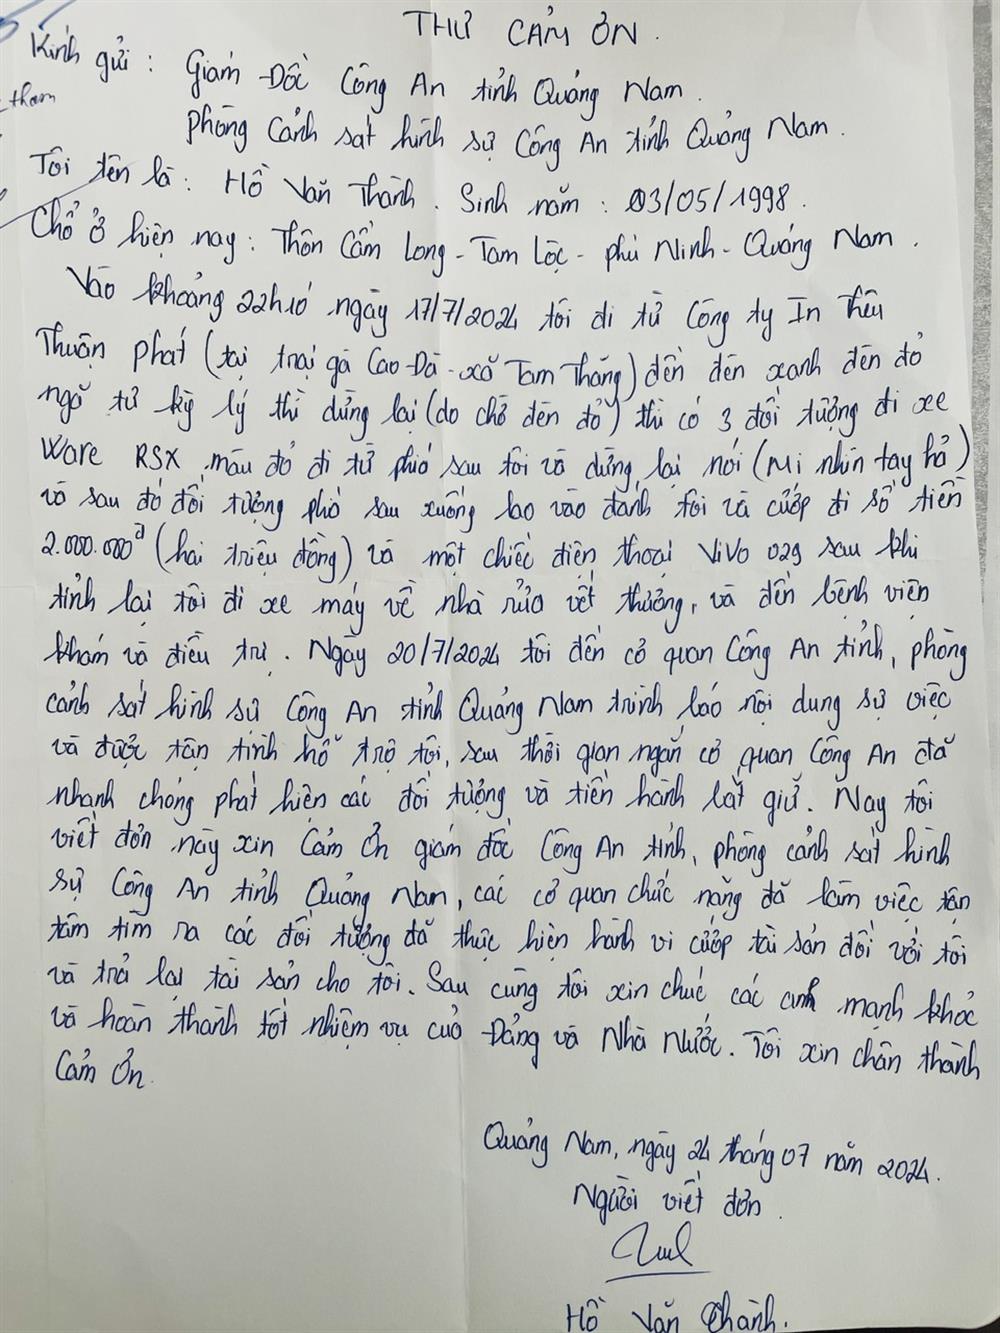 THƯ CẢM ƠN.
Kính gửi: Giám Đốc Công An tỉnh Quảng Nam.
tham
Phòng Cảnh sát hình sự Công An tỉnh Quảng Nam.
Tôi tên là: Hồ Văn Thành. Sinh năm: 03/05/1998.
Chổ ở hiện nay: Thôn Cẩm Long - Tam Lộc - phú Ninh - Quảng Nam.
Vào khoảng 22h10 ngày 17/7/2024 tôi đi từ Công ty In Thêu
Thuận phát (tại trại gà Cao-Dã-xã Tam Thăng) đến đèn xanh đèn đỏ
ngã tư kỳ lý thì dừng lại (do chờ đèn đỏ) thì có 3 đối tượng đi xe
Ware RSX màu đỏ đi từ phiá sau tôi và dừng lại nói (Mi nhìn tay hả)
và sau đó đối tượng phó sau xuống lao vào đánh tôi và cướp đi số tiền
2.000.000đ (hai triệu đồng) và một chiếc điện thoại ViVo 029 sau khi
tỉnh lại tôi đi xe máy về nhà rửa vết thương, và đến bệnh viện
khám và điều trị. Ngày 20/7/2024 tôi đến cơ quan Công An tỉnh, phòng
cảnh sát hình sự Công An tỉnh Quảng Nam trình báo nội dung sự việc
và được tận tình hỗ trợ tôi, sau thời gian ngắn cơ quan Công An đã
nhanh chóng phát hiện các đối tượng và tiến hành bắt giữ. Nay tôi
viết đơn này xin Cảm Ơn giám đốc Công An tỉnh, phòng cảnh sát hình
sự Công An tỉnh Quảng Nam, các cơ quan chức năng đã làm việc tận
tâm tìm ra các đối tượng đã thực hiện hành vi cướp tài sản đối với tôi
và trả lại tài sản cho tôi. Sau cùng tôi xin chúc các anh mạnh khỏe
và hoàn thành tốt nhiệm vụ của Đảng và Nhà Nước. Tôi xin chân thành
Cảm Ơn.
Quảng Nam, ngày 24 tháng 07 năm 2024.
Người viết đơn.
Hồ Văn Thành.